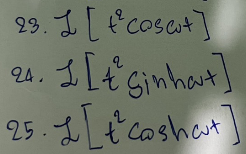 23. ℒ[t² cos ωt]
24. ℒ[t² sinh ωt]
25. ℒ[t² cosh ωt]